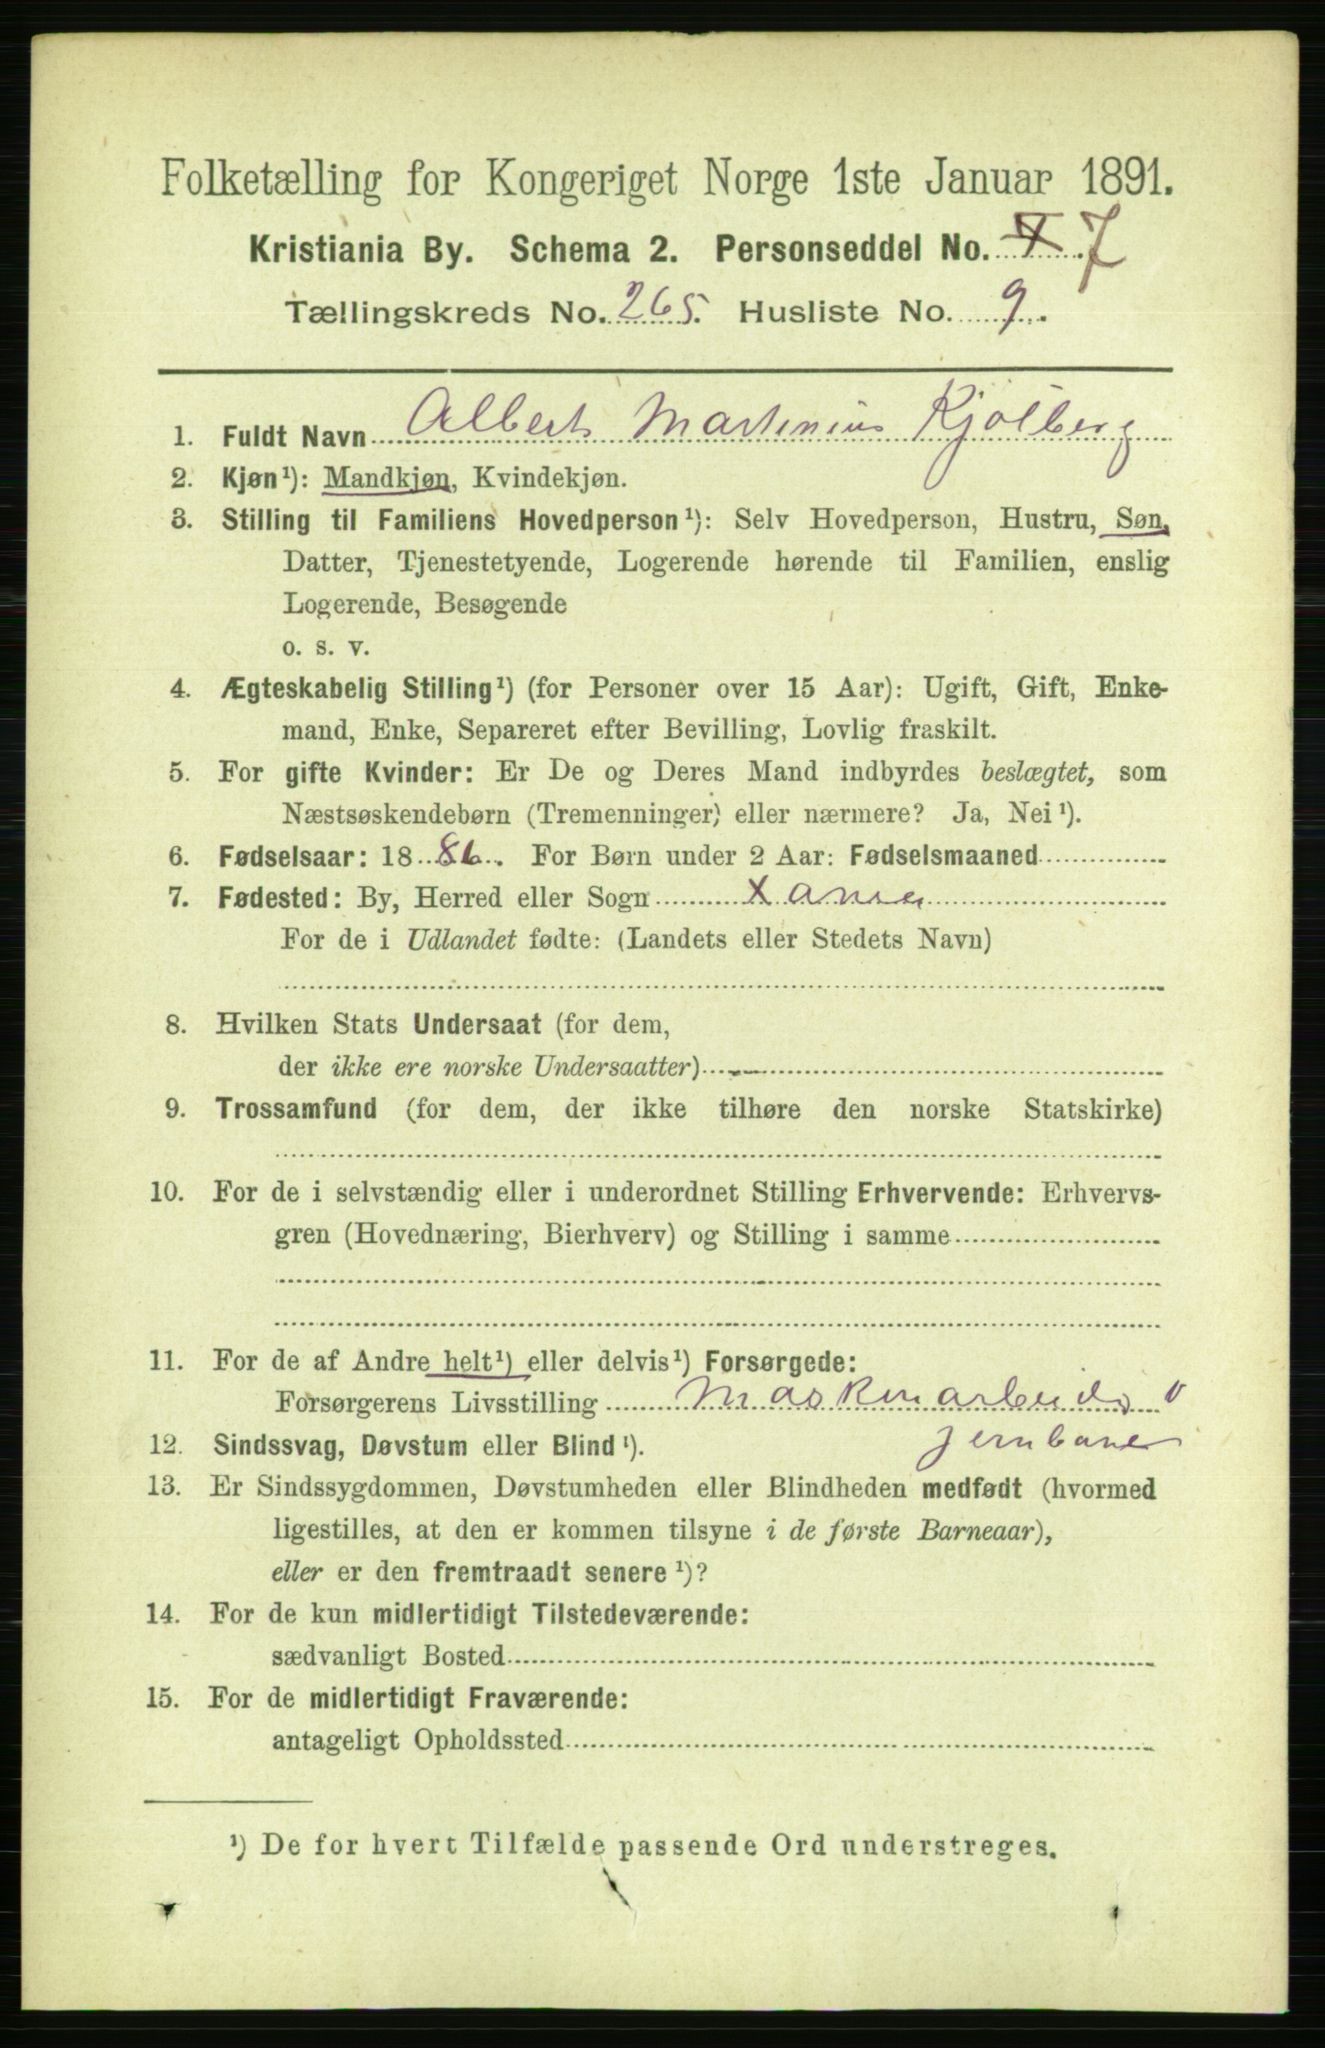 Folketælling for Kongeriget Norge 1ste Januar 1891.
Kristiania By. Schema 2. Personseddel No. 7
Tællingskreds No. 265. Husliste No. 9.
1. Fuldt Navn Albert Martinius Kjølberg
2. Kjøn¹): Mandkjøn, Kvindekjøn.
3. Stilling til Familiens Hovedperson¹): Selv Hovedperson, Hustru, Søn,
Datter, Tjenestetyende, Logerende hørende til Familien, enslig
Logerende, Besøgende
o. s. v.
4. Ægteskabelig Stilling¹) (for Personer over 15 Aar): Ugift, Gift, Enke-
mand, Enke, Separeret efter Bevilling, Lovlig fraskilt.
5. For gifte Kvinder: Er De og Deres Mand indbyrdes beslægtet, som
Næstsøskendebørn (Tremenninger) eller nærmere? Ja, Nei¹).
6. Fødselsaar: 1886. For Børn under 2 Aar: Fødselsmaaned
7. Fødested: By, Herred eller Sogn Xania
For de i Udlandet fødte: (Landets eller Stedets Navn)
8. Hvilken Stats Undersaat (for dem,
der ikke ere norske Undersaatter)
9. Trossamfund (for dem, der ikke tilhøre den norske Statskirke)
10. For de i selvstændig eller i underordnet Stilling Erhvervende: Erhvervs-
gren (Hovednæring, Bierhverv) og Stilling i samme
11. For de af Andre helt¹) eller delvis¹) Forsørgede:
Forsørgerens Livsstilling Maskinarbeider v
Jernbane
12. Sindssvag, Døvstum eller Blind¹).
13. Er Sindssygdommen, Døvstumheden eller Blindheden medfødt (hvormed
ligestilles, at den er kommen tilsyne i de første Barneaar),
eller er den fremtraadt senere¹)?
14. For de kun midlertidigt Tilstedeværende:
sædvanligt Bosted
15. For de midlertidigt Fraværende:
antageligt Opholdssted
¹) De for hvert Tilfælde passende Ord understreges.